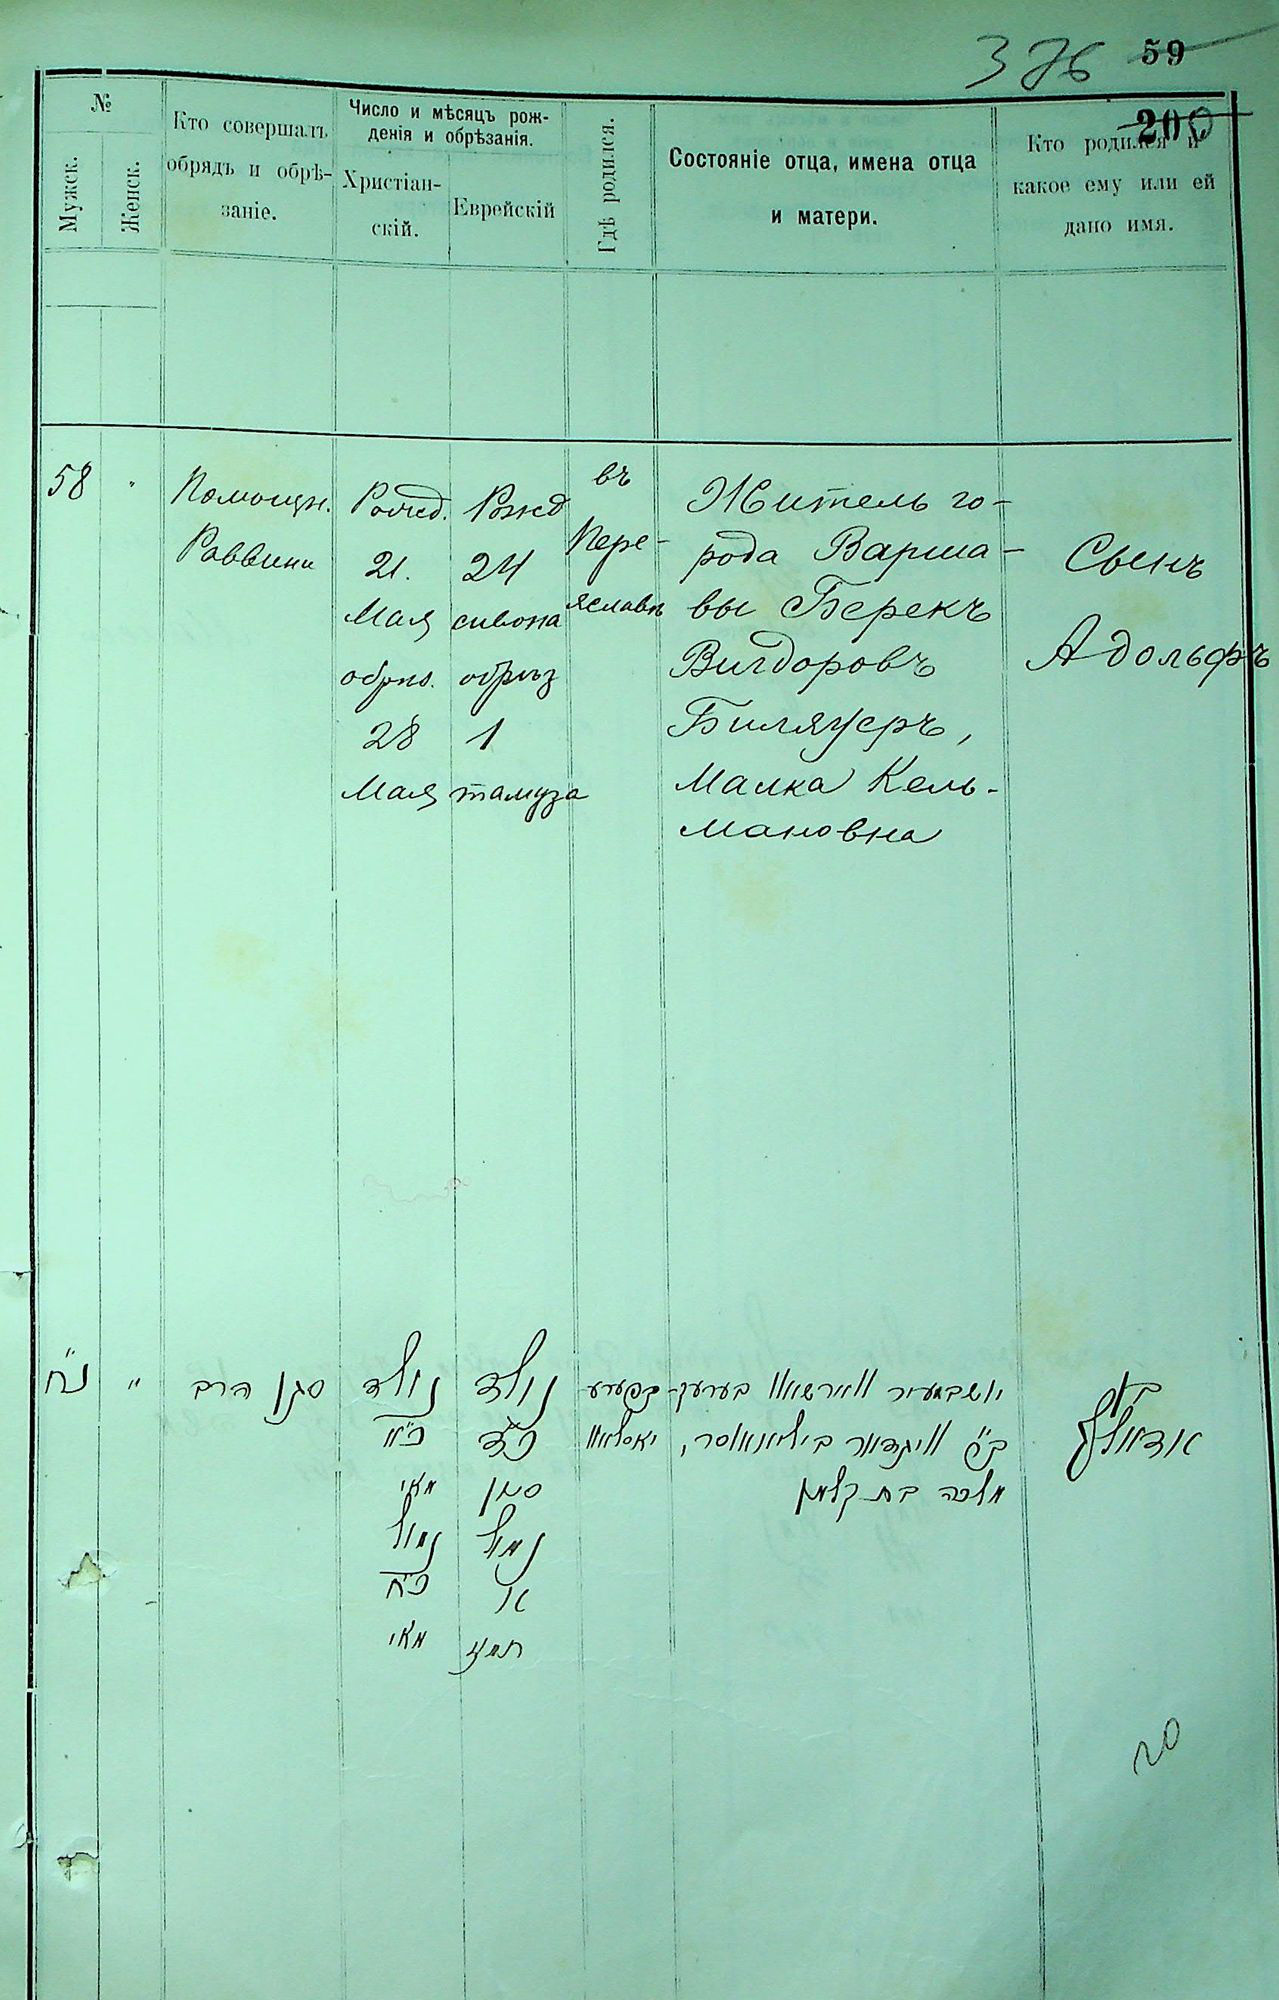 376 59
200
№
Мужск.
Женск.
Кто совершалъ
обрядъ и обрѣ-
заніе.
Число и мѣсяцъ рож-
денія и обрѣзанія.
Христіан-
скій.
Еврейскій
Гдѣ родился.
Состояніе отца, имена отца
и матери.
Кто родился и
какое ему или ей
дано имя.
58 "
Помощн.
Раввина
Рожд.
21.
Мая
обрѣз.
28
Мая
Рожд
24
сивона
обрѣз
1
тамуза
въ
Пере-
яславѣ
Житель го-
рода Варша-
вы Берекъ
Вигдоровъ
Биляуеръ,
Малка Кель-
мановна
Сынъ
Адольфъ
נ״ח "
סגן הרב
נולד
כ״א
מאי
נמול
כ״ח
מאי
נולד
כ״ד
סיון
נמול
א׳
תמוז
בפערע
יאסלאוו
יושב מעיר ווארשאוו בערעק
ב״ר וויגדאר
מלכה בת קלמן
בן
אדאלף
20